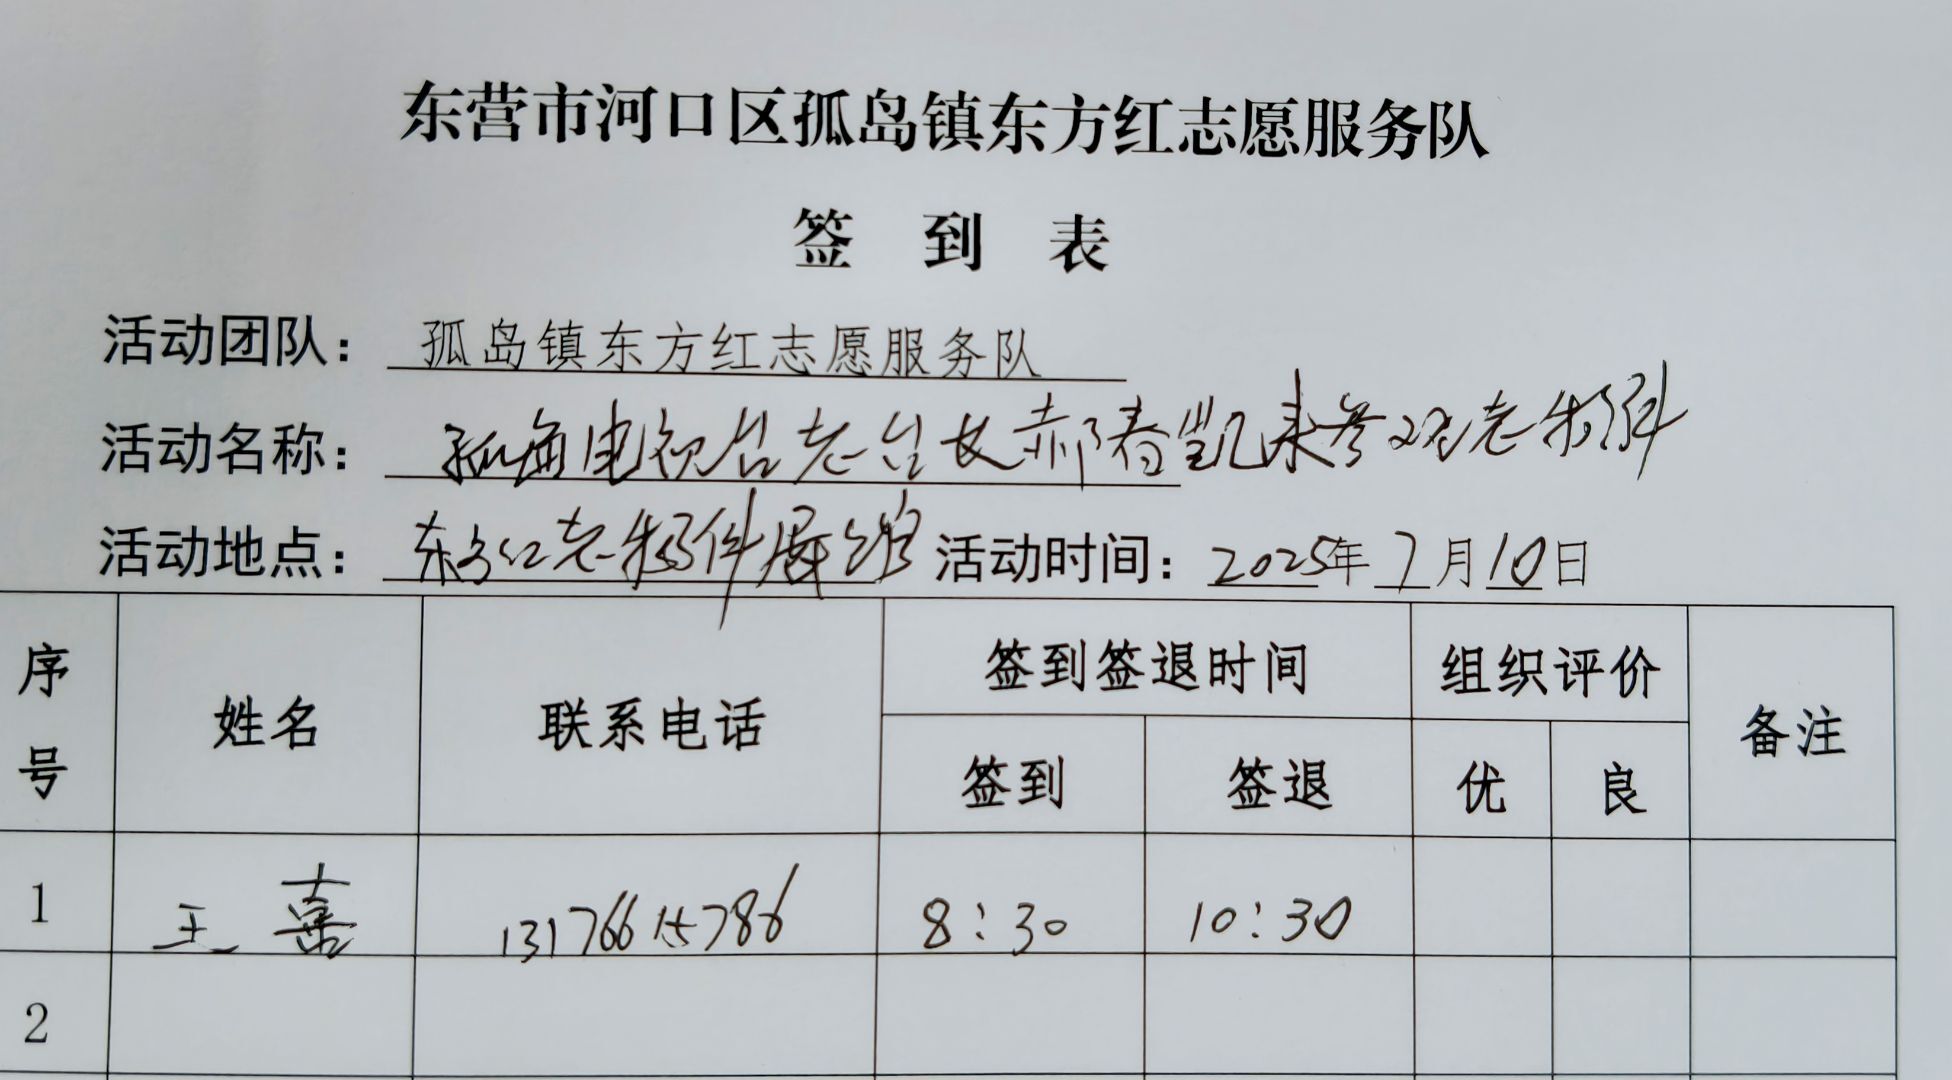 东营市河口区孤岛镇东方红志愿服务队
签 到 表
活动团队： 孤岛镇东方红志愿服务队
活动名称： 孤岛电视台老台长郝春凯来参观老物件
活动地点： 东方红老物件展馆 活动时间：2025年7月10日
序号 姓名 联系电话 签到签退时间 组织评价 备注
签到 签退 优 良
1 王嘉 13176615786 8:30 10:30
2